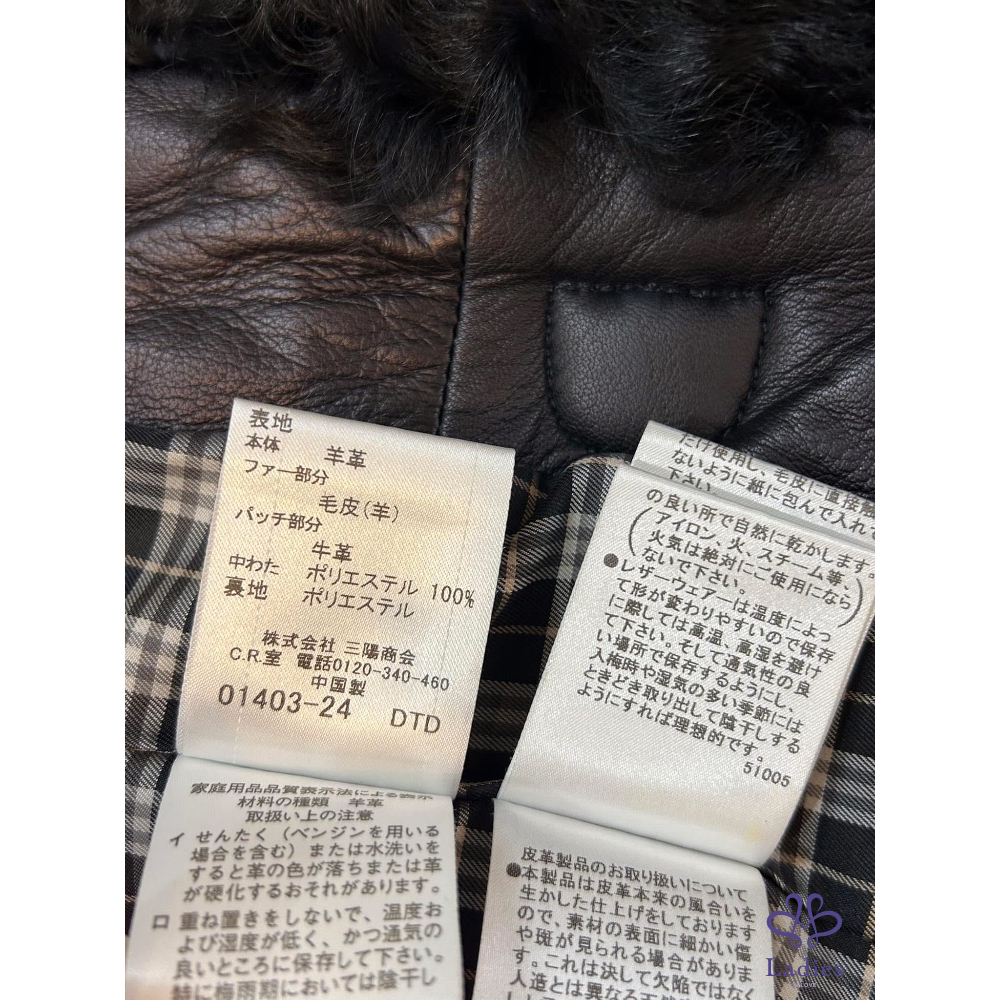 表地
本体 羊革
ファー部分
毛皮(羊)
パッチ部分
牛革
中わた ポリエステル 100%
裏地 ポリエステル
株式会社 三陽商会
C.R.室 電話0120-340-460
中国製
01403-24 DTD
家庭用品品質表示法による表示
材料の種類 羊革
取扱い上の注意
イ せんたく(ベンジンを用いる
場合を含む)または水洗いを
すると革の色が落ちまたは革
が硬化するおそれがあります。
ロ 重ね置きをしないで、温度お
よび湿度が低く、かつ通気の
良いところに保存して下さい。
特に梅雨期においては陰干し
だけ使用し、毛皮に直接触
ないように紙に包んで入れて
下さい
の良い所で自然に乾かします。
(アイロン、火、スチーム等、
火気は絶対にご使用になら
ないで下さい。)
●レザーウェアーは温度によっ
て形が変わりやすいので保存
に際しては高温、高湿を避け
て下さい。そして通気性の良
い場所で保存するようにし、
入梅時や湿気の多い季節には
ときどき取り出して陰干しする
ようにすれば理想的です。
51005
皮革製品のお取り扱いについて
●本製品は皮革本来の風合いを
生かした仕上げをしております
ので、素材の表面に細かい傷
や斑が見られる場合がありま
す。これは決して欠陥ではなく
人造とは異なる天然
Ladies
LOVE